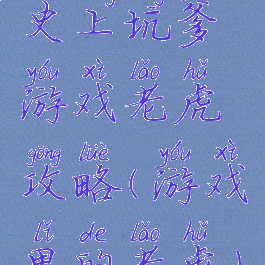 史上坑爹
yóu xì lǎo hǔ
游戏老虎
gōng lüè yóu xì
攻略(游戏
lǐ de lǎo hǔ
里的老虎)